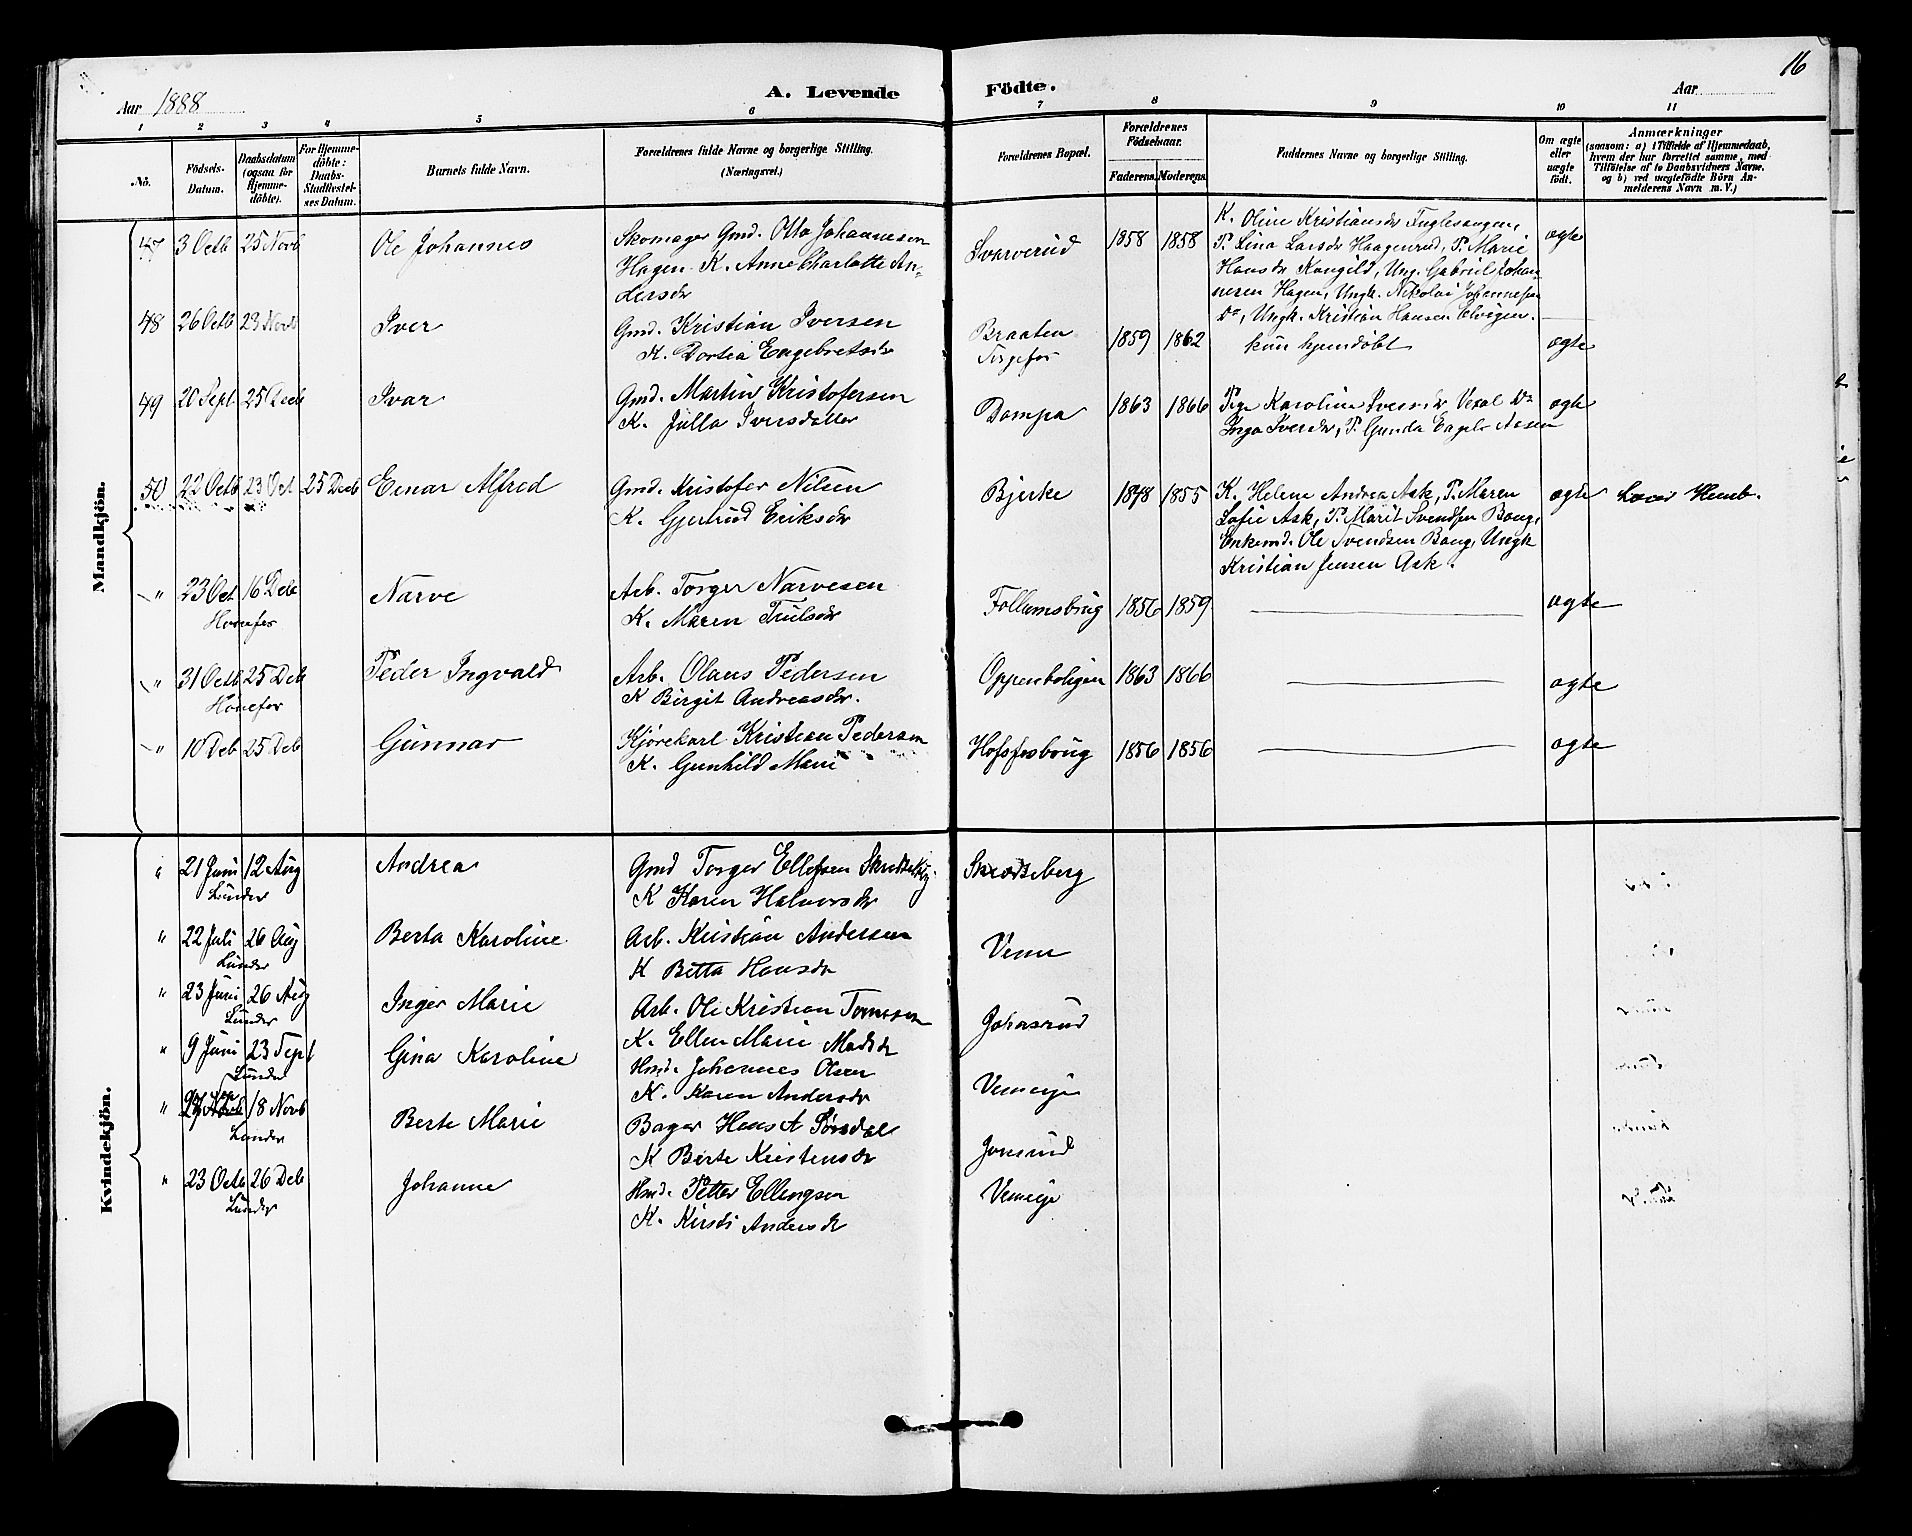 16
Aar 1888
A. Levende Födte.
Aar
1 2 3 4 5 6 7 8 9 10 11
No.
Födsels-Datum.
Daabsdatum (ogsaa for Hjemmedöbte).
For Hjemmedöbte: Daabs-Stadfæstelses Datum.
Barnets fulde Navn.
Forældrenes fulde Navne og borgerlige Stilling. (Næringsvei.)
Forældrenes Bopæl.
Forældrenes Födselsaar.
Faderens. Moderens.
Faddernes Navne og borgerlige Stilling.
Om ægte eller uægte födt.
Anmærkninger
(saasom: a) i Tilfælde af Hjemmedaab, hvem der har forrettet samme, med Tilföielse af to Daabsvidners Navne. og b) ved uægtefödte Börn Anmelderens Navn m. V.)
Mandkjön.
47 3 Octb 25 Novb Ole Johannes Skomager Gmd. Otto Johannesen Svarverud 1858 1858 K. Oline Kristiansdr Fuglesangen, ægte
Hagen K. Anne Charlotte An- P. Lina Larsdr Haagenrud, P. Marie
dersdr Hansdr Kongild, Ung. Gabriel Johan
nesen Hagen, Ungk. Nikolai Johannesen
Do, Ungk. Kristian Hansen Elvigen.
48 26 Octb 23 Novb Iver Gmd. Kristian Iversen Braaten 1859 1862 kun hjemdöbt ægte
K. Dortea Engebretsdr
49 20 Sept 25 Decb Ivar Gmd. Martin Kristofersen Dompa 1863 1866 Pige Karoline Iversdr Vexal Do ægte
K. Julla Iversdatter Inga Iversdr, P. Gunda Engebr Aasen
50 22 Octb 23 Oct 25 Decb Einar Alfred Gmd. Kristofer Nilsen Bjerke 1848 1855 K. Helene Andrea Ask, P. Maren ægte
K. Gjertrud Eriksdr Sofie Ask, P. Marit Svendsen Bong,
Enkemd. Ole Svendsen Bong, Ungk
Kristian Jensen Ask.
" 23 Oct 16 Deb Narve Arb. Torger Narvesen Follumsbrug 1856 1859 ægte
Hønefos K. Maren Trulsdr
" 31 Octb 25 Deb Peder Ingvald Arb. Olaus Pedersen Oppenboligen 1863 1866 ægte
Hønefos K Birgit Andreasdr.
" 10 Deb 25 Deb Gunnar Kjørekarl Kristian Pedersen Hofsfosbrug 1856 1856 ægte
K. Gunhild Marie
Kvindekjön.
" 21 Juni 12 Aug Andrea Gmd Torger Ellefsen Skredsebg. Skredseberg
Lunder K Karen Halvorsdr
" 22 Juli 26 Aug Berta Karoline Arb. Kristian Andersen
Lunder K Betta Hansdr
" 23 Juni 26 Aug Inger Marie Arb. Ole Kristian Tomesen Johnsrud
Lunder K. Ellen Marie Madsdr
" 9 Juni 23 Sept Gina Karoline Hmd. Johannes Olsen Vemeeje
Lunder K. Karen Andersdr
" 18 Novb Berte Marie Bager Hans A Sørsdal Jonsrud
Lunder K Berte Kristensdr
" 23 Octb 26 Deb Johanne Hmd. Petter Ellingsen Vemeeje
Lunder K. Kirsti Andersdr